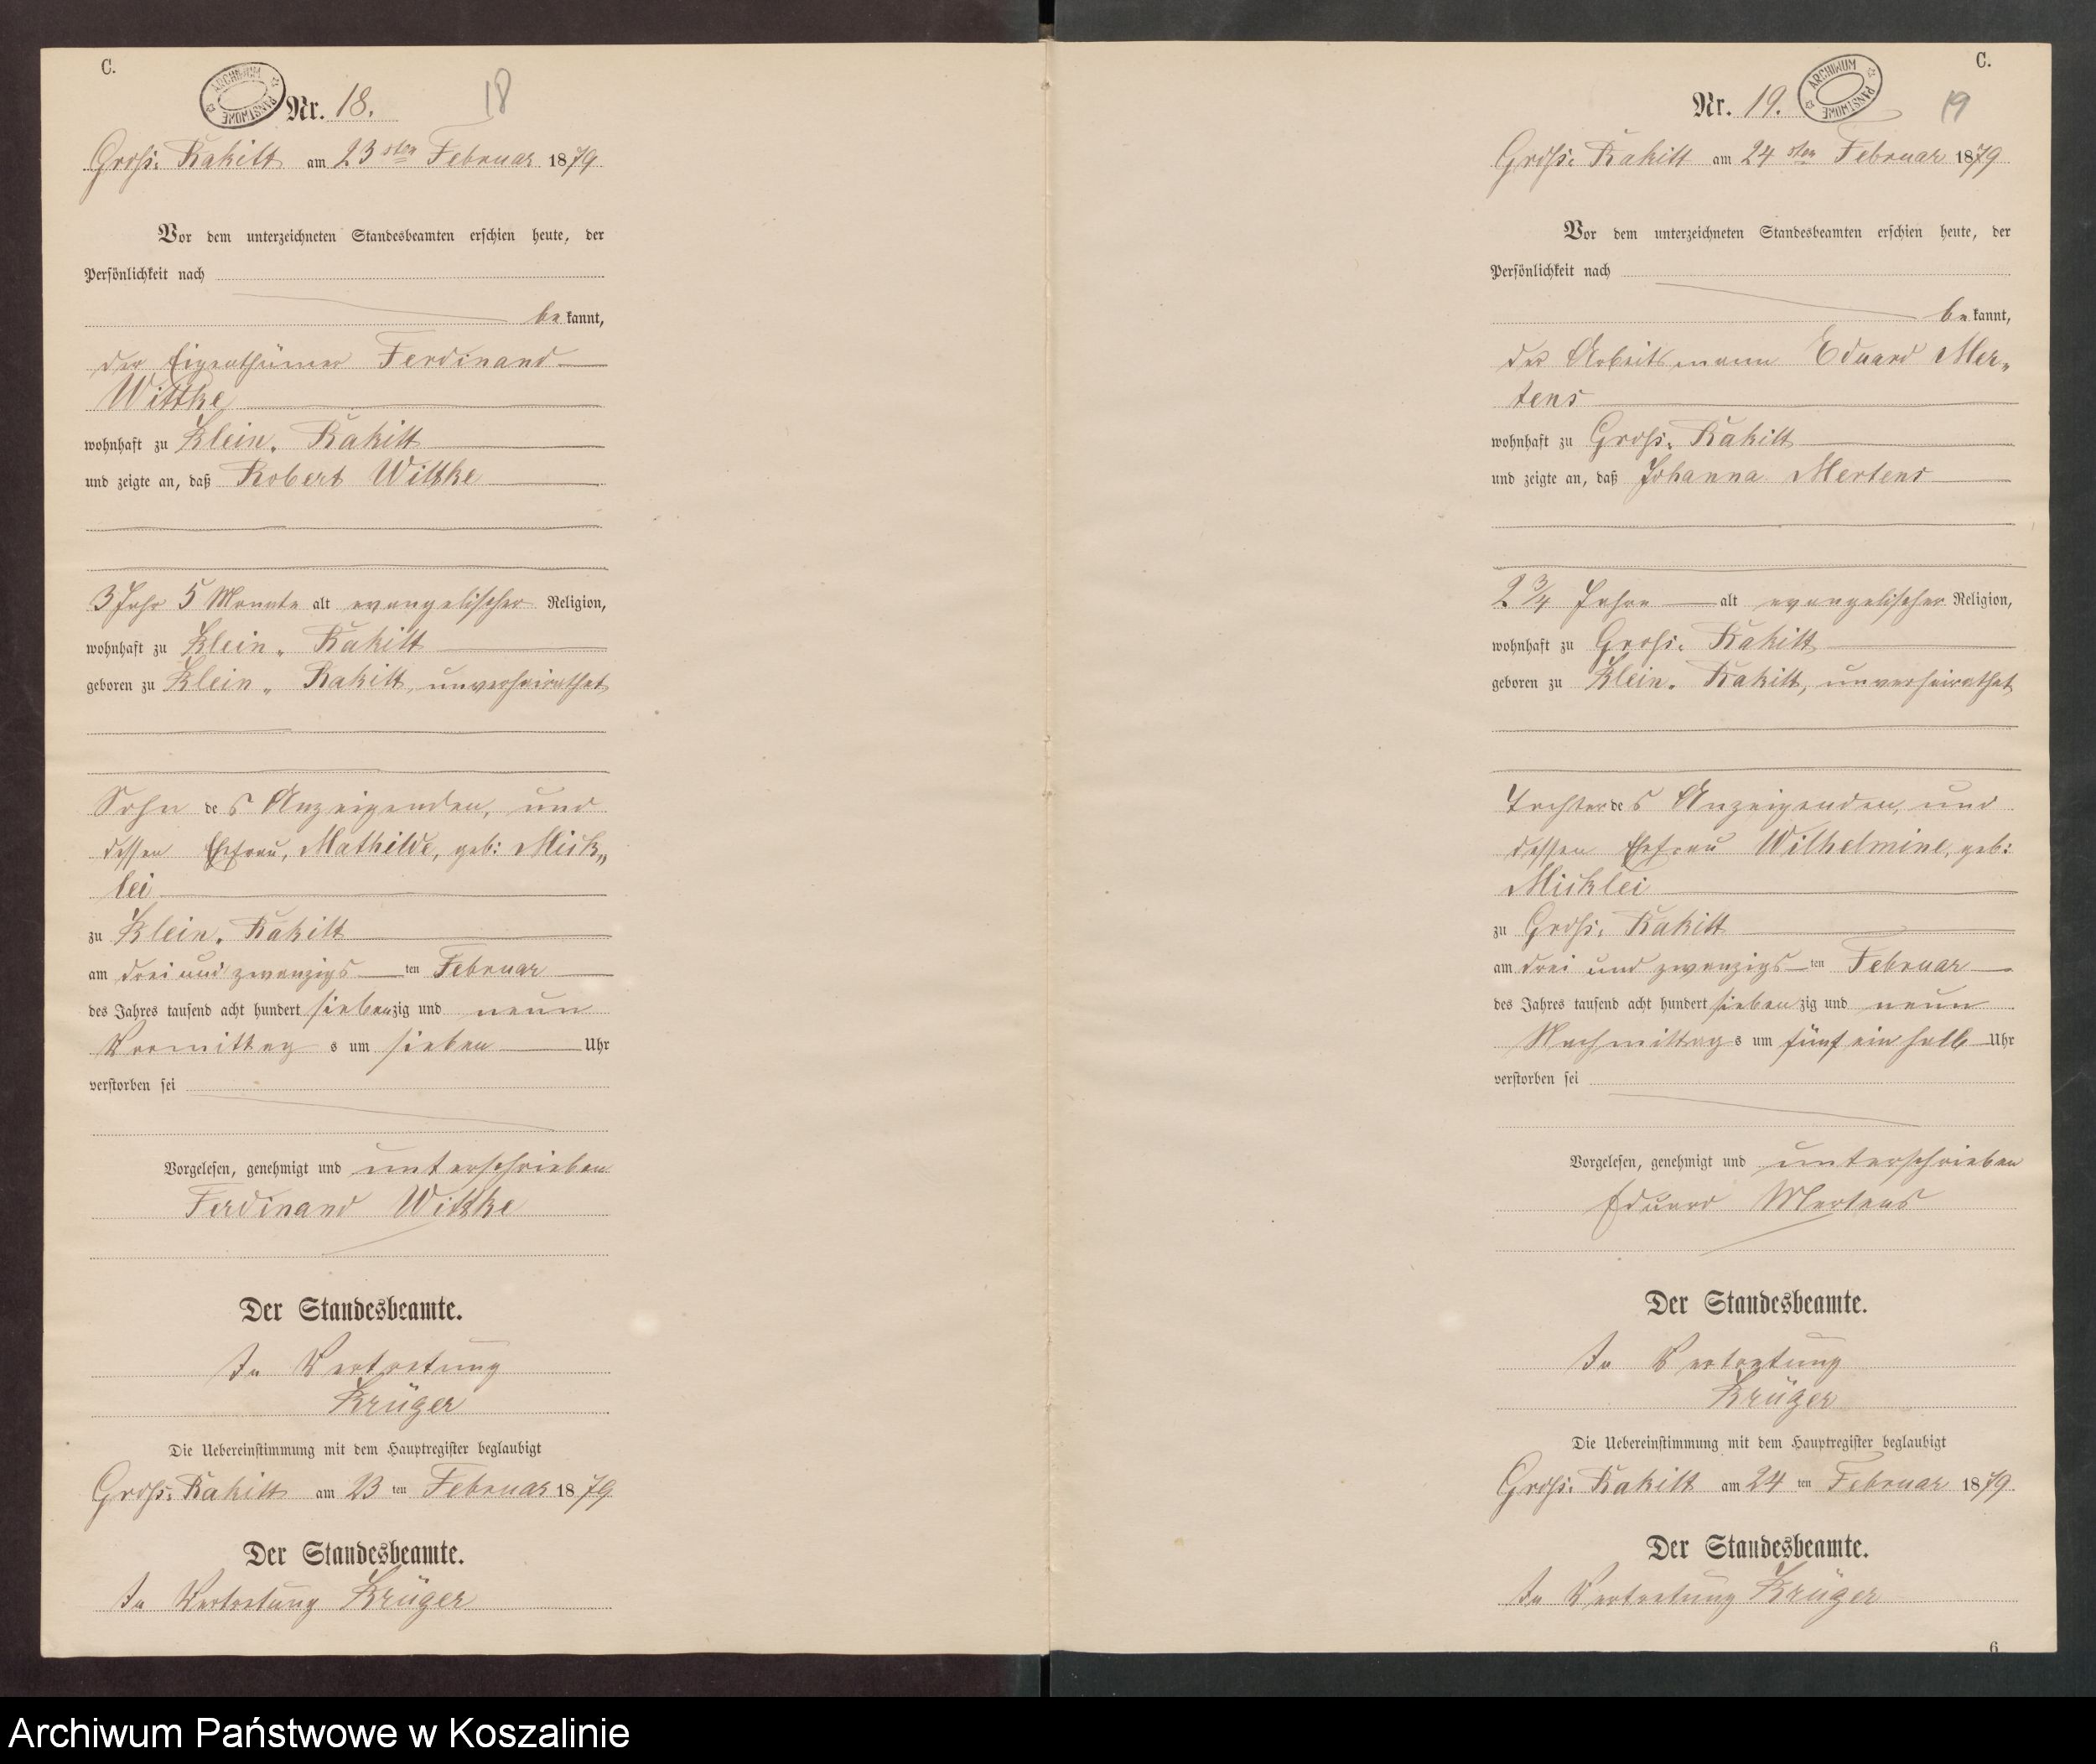 C.
ARCHIWUM PAŃSTWOWE
Nr. 18.
18
Groß: Rakitt am 23 sten Februar 1879
Vor dem unterzeichneten Standesbeamten erschien heute, der
Persönlichkeit nach
bekannt,
der Eigenthümer Ferdinand
Wittke
wohnhaft zu Klein. Rakitt
und zeigte an, daß Robert Wittke
3 Jahr 5 Monate alt evangelischer Religion,
wohnhaft zu Klein. Rakitt
geboren zu Klein. Rakitt, unverheirathet
Sohn des Anzeigenden, und
dessen Ehefrau, Mathilde, geb: Mick„
lei
zu Klein. Rakitt
am drei und zwanzigsten Februar
des Jahres tausend acht hundert siebenzig und neun
Vormittags um sieben Uhr
verstorben sei
Vorgelesen, genehmigt und unterschrieben
Ferdinand Wittke
Der Standesbeamte.
In Vertretung
Krüger
Die Uebereinstimmung mit dem Hauptregister beglaubigt
Groß: Rakitt am 23 ten Februar 1879.
Der Standesbeamte.
In Vertretung Krüger
C.
Nr. 19.
ARCHIWUM PAŃSTWOWE
19
Groß: Rakitt am 24 sten Februar 1879
Vor dem unterzeichneten Standesbeamten erschien heute, der
Persönlichkeit nach
bekannt,
der Arbeitsmann Eduard Mer„
tens
wohnhaft zu Groß. Rakitt
und zeigte an, daß Johanna Mertens
2 3/4 Jahre alt evangelischer Religion,
wohnhaft zu Groß. Rakitt
geboren zu Klein. Rakitt, unverheirathet
Tochter des Anzeigenden, und
dessen Ehefrau Wilhelmine, geb:
Micklei
zu Groß. Rakitt
am drei und zwanzigsten Februar
des Jahres tausend acht hundert siebenzig und neun
Nachmittags um fünf ein halb Uhr
verstorben sei
Vorgelesen, genehmigt und unterschrieben
Eduard Mertens
Der Standesbeamte.
In Vertretung
Krüger
Die Uebereinstimmung mit dem Hauptregister beglaubigt
Groß: Rakitt am 24 ten Februar 1879.
Der Standesbeamte.
In Vertretung Krüger
6
Archiwum Państwowe w Koszalinie